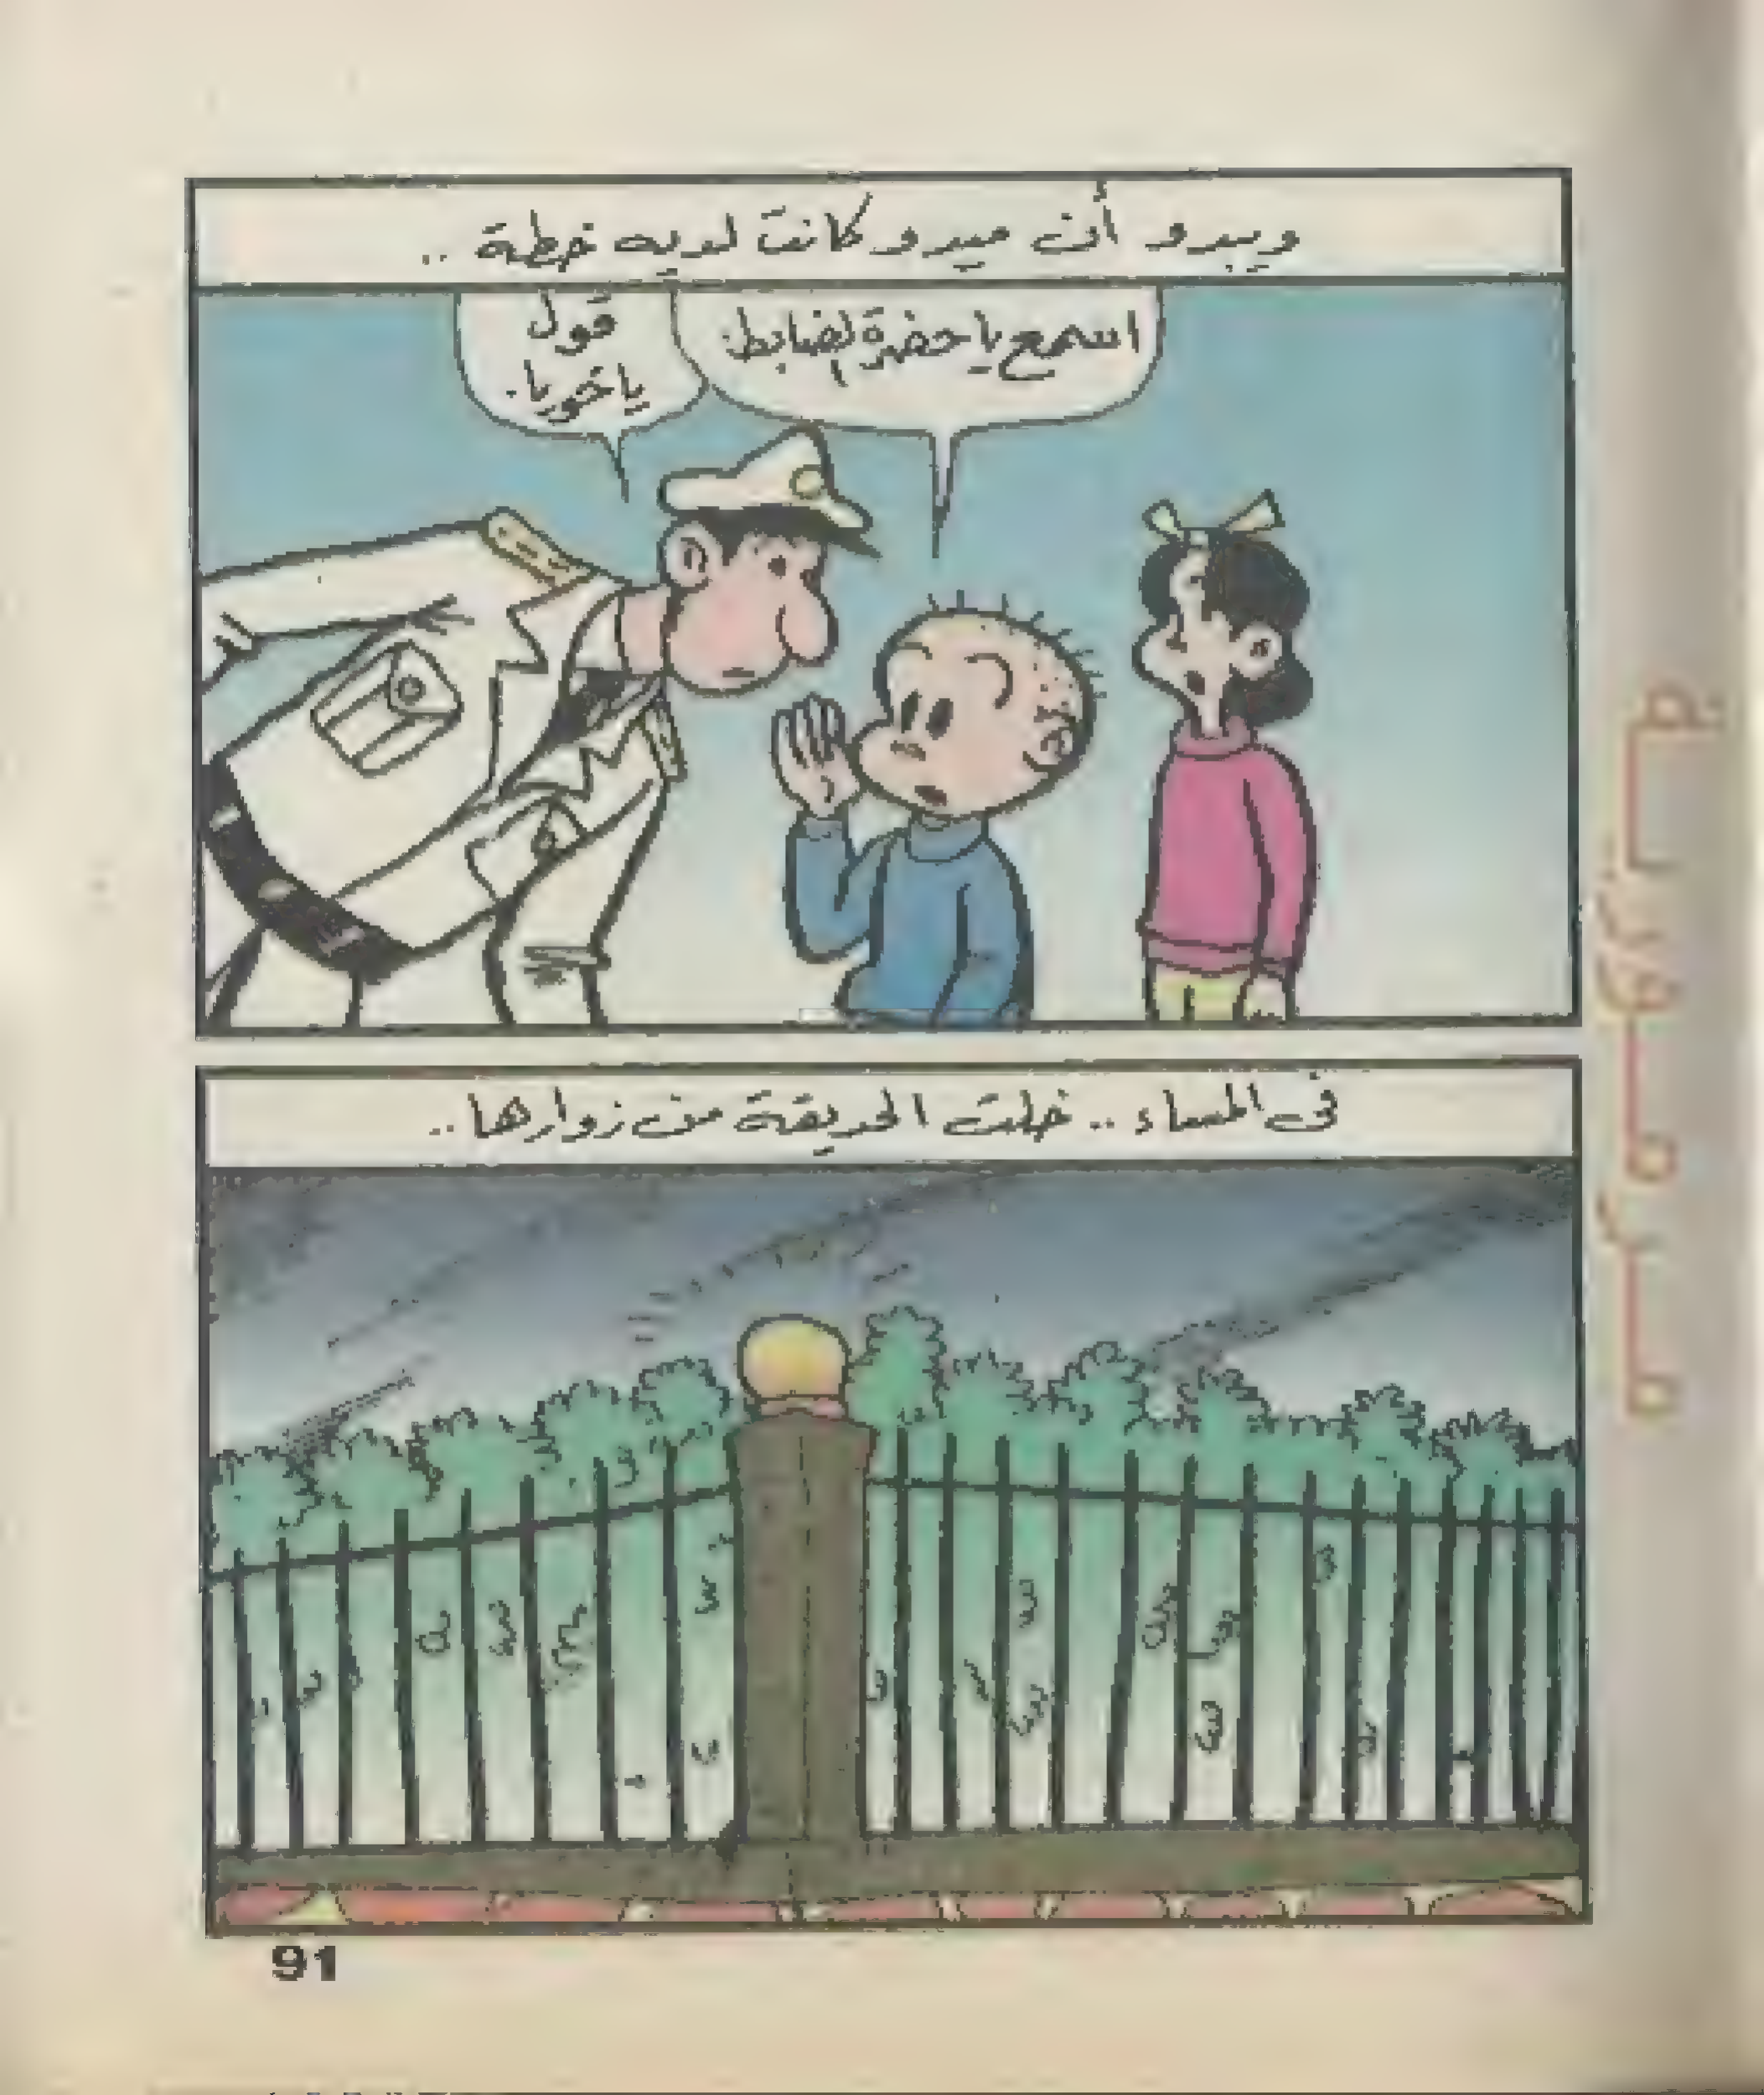 ويبدو أن ميدو كانت لديه خطة ..
اسمع يا حضرة الضابط.
قول
ياخويا.
في المساء .. خلت الحديقة من زوارها ..
91